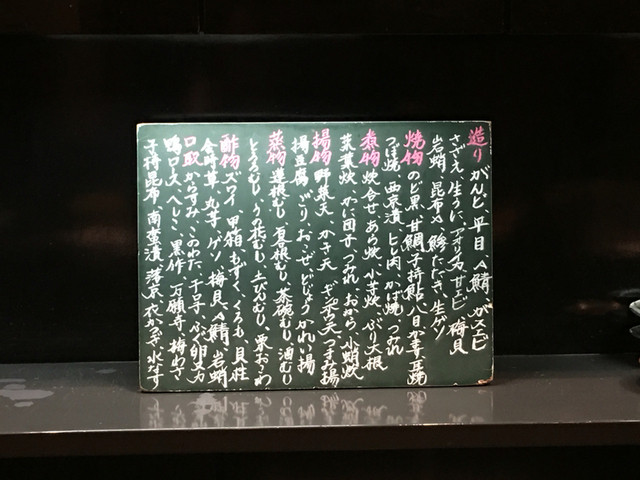 造り がんど、平目、〆鯖、ガスエビ
さざえ、生うに、アオリイカ、甘エビ、梅貝
岩蛸、昆布〆、鯵たたき、生ゲソ
焼物 のど黒、甘鯛、子持鮎、八目
つぼ焼、西京漬、ヒレ肉、かば焼、つみれ
煮物 炊合せ、あら炊、小芋炊、ぶり大根
菜葉炊、かに団子、つみれ、おから、小蛸炊
揚物 野菜天、かき天、ギンポ天、つまみ揚
揚豆腐、ごり、おこぜ、どじょう、かれい揚
蒸物 蓮根むし、百合根むし、茶碗むし、酒むし
とろろむし、うの花むし、土びんむし、栗おこわ
酢物 ズワイ、甲箱、もずく、くるも、貝柱
金時草、丸芋、ゲソ、梅貝、〆鯖、岩蛸
口取 からすみ、このわた、干子、ふぐ卵
鴨ロース、へしこ、黒作、万願寺、梅わさ
子持昆布、南蛮漬、水なす